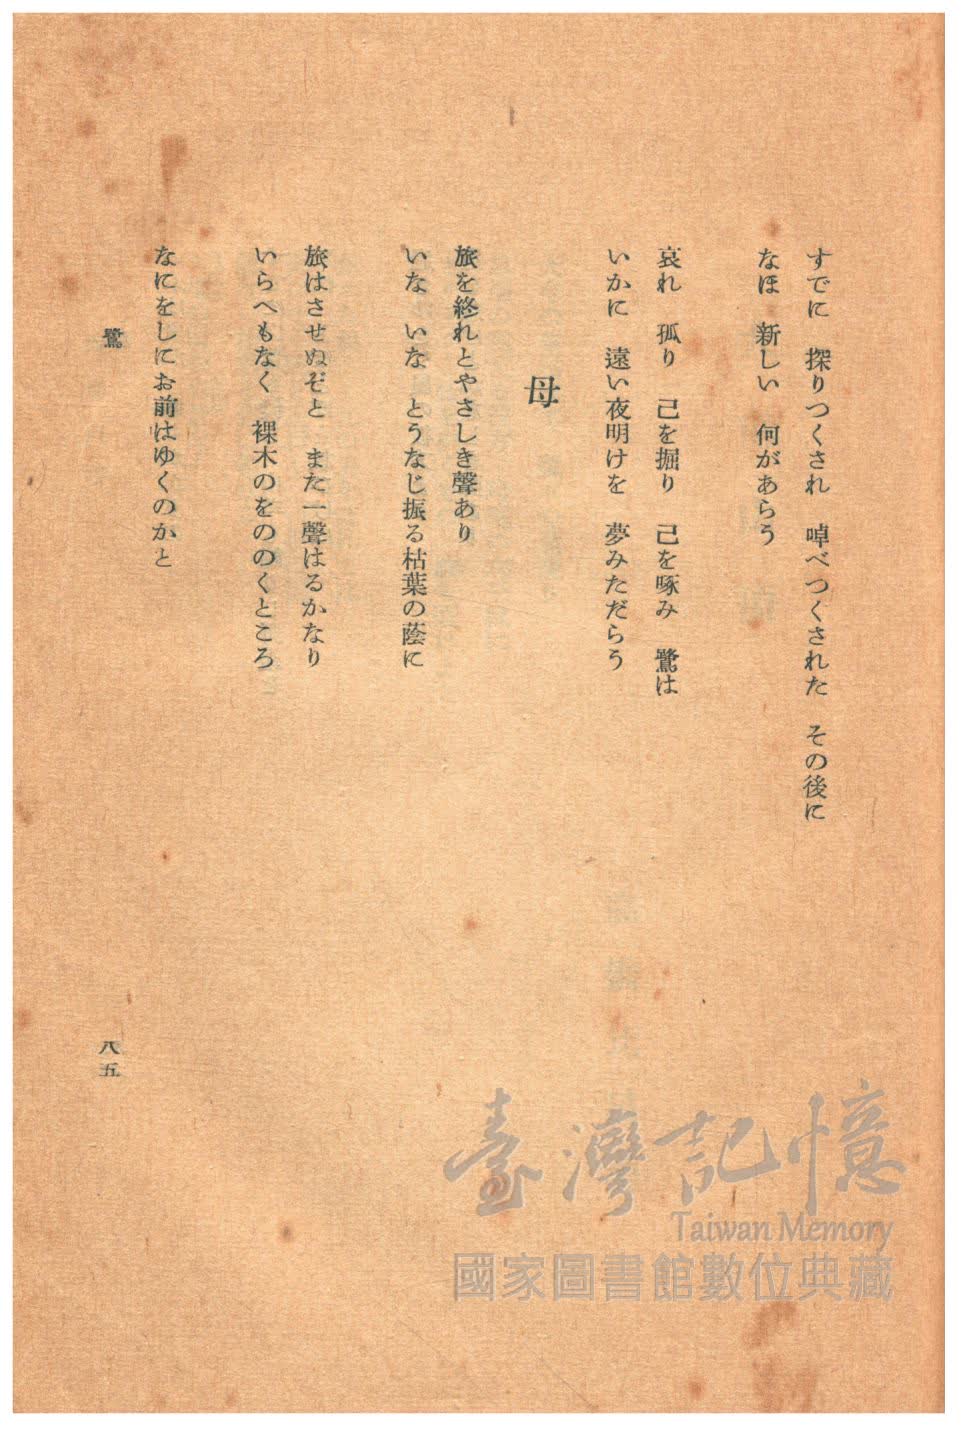 すでに　探りつくされ　啅べつくされた　その後に
なほ　新しい　何があらう
哀れ　孤り　己を掘り　己を啄み　鷺は
いかに　遠い夜明けを　夢みただらう
母
旅を終れとやさしき聲あり
いな　いな　とうなじ振る枯葉の蔭に
旅はさせぬぞと　また一聲はるかなり
いらへもなく　裸木のをののくところ
なにをしにお前はゆくのかと
鷺
八五
臺灣記憶
Taiwan Memory
國家圖書館數位典藏